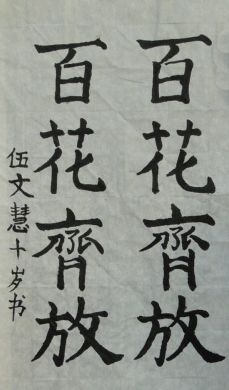 百花齊放
百花齊放
伍文慧十岁书